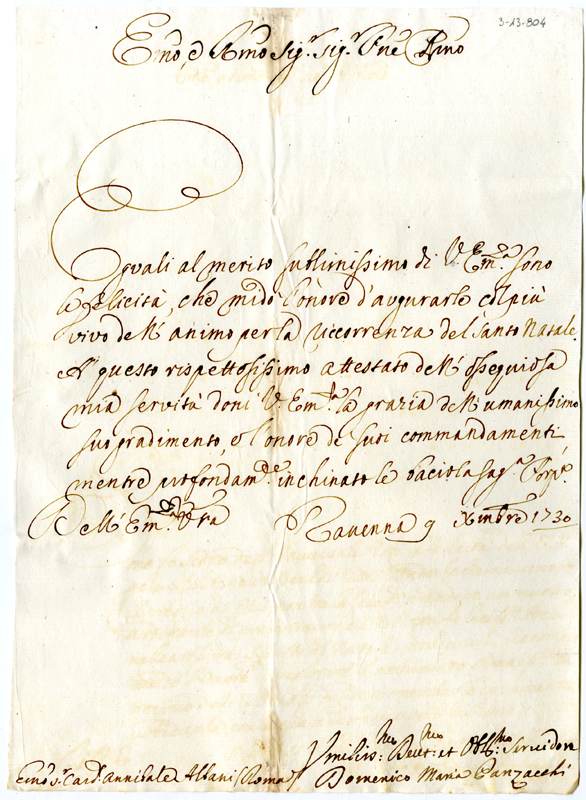 3-13-804
Emo, e Rmo Sig.r Sig.r Pne Pmo
Eguali al merito sublimissimo di V. Em.a sono
le felicità, che mi dò l'onore d'augurarle col più
vivo dell'animo per la riccorrenza del Santo Natale.
A questo rispettosissimo attestato dell'ossequiosa
mia servitù doni V. Em.a la grazia dell'umanissimo
suo gradimento, e l'onore de suoi commandamenti
mentre profondam.te inchinato le bacio la Sag.a Porp.a
Dell'Em.a Vra Ravenna 9 Xmbre 1730
Umiliss.mo Devot.mo et Obblig.mo Servidore
Emo Sr Card. Annibale Albani (Roma) Domenico Maria Panzacchi